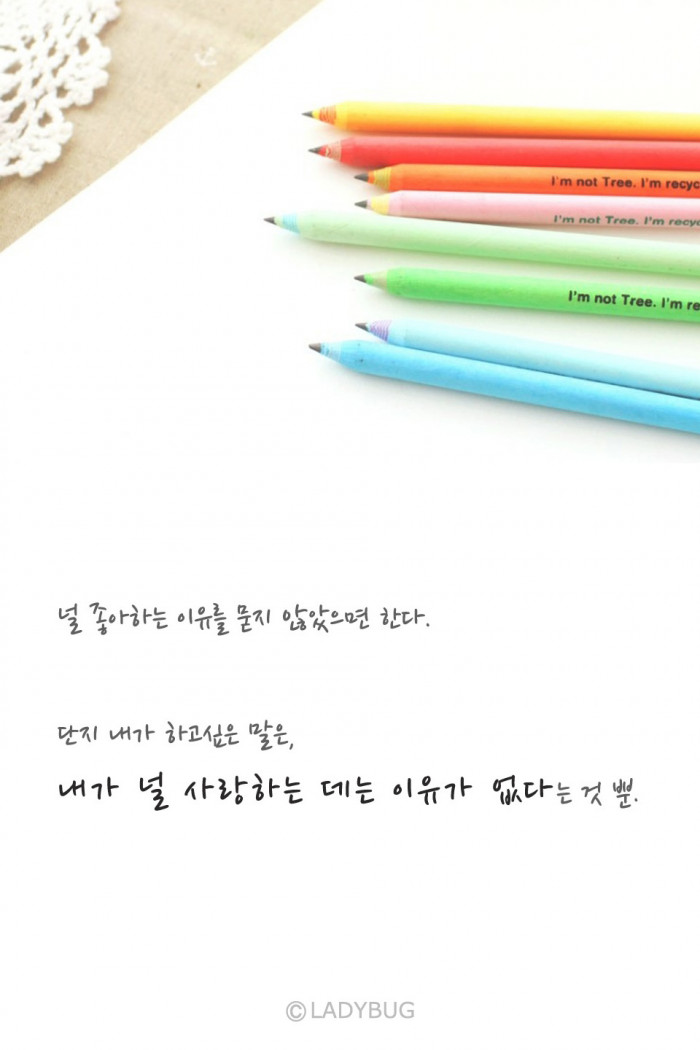 I'm not Tree. I'm recyc
I'm not Tree. I'm recyc
I'm not Tree. I'm re
널 좋아하는 이유를 묻지 않았으면 한다.
단지 내가 하고싶은 말은,
내가 널 사랑하는 데는 이유가 없다는 것 뿐.
©LADYBUG